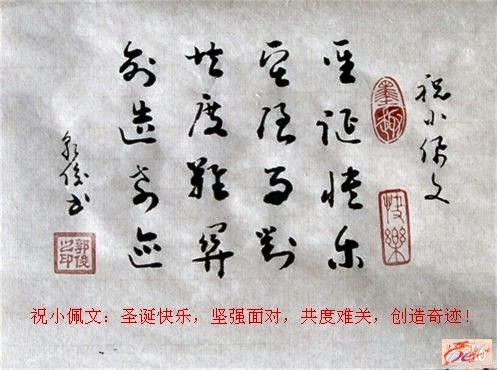 祝小佩文
圣诞快乐
坚强面对
共度难关
创造奇迹
泉俊书
快樂
郭俊之印
祝小佩文：圣诞快乐，坚强面对，共度难关，创造奇迹！